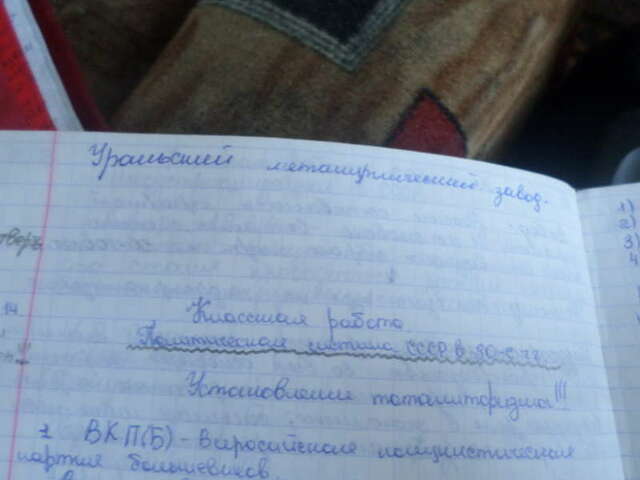 Уральский металлургический завод.
Классная работа
Политическая система СССР в 30-е гг.
Установление тоталитаризма!!!
1 ВКП(Б) - Всеросийская комунистическая
партия большевиков.
1)
2)
3)
4